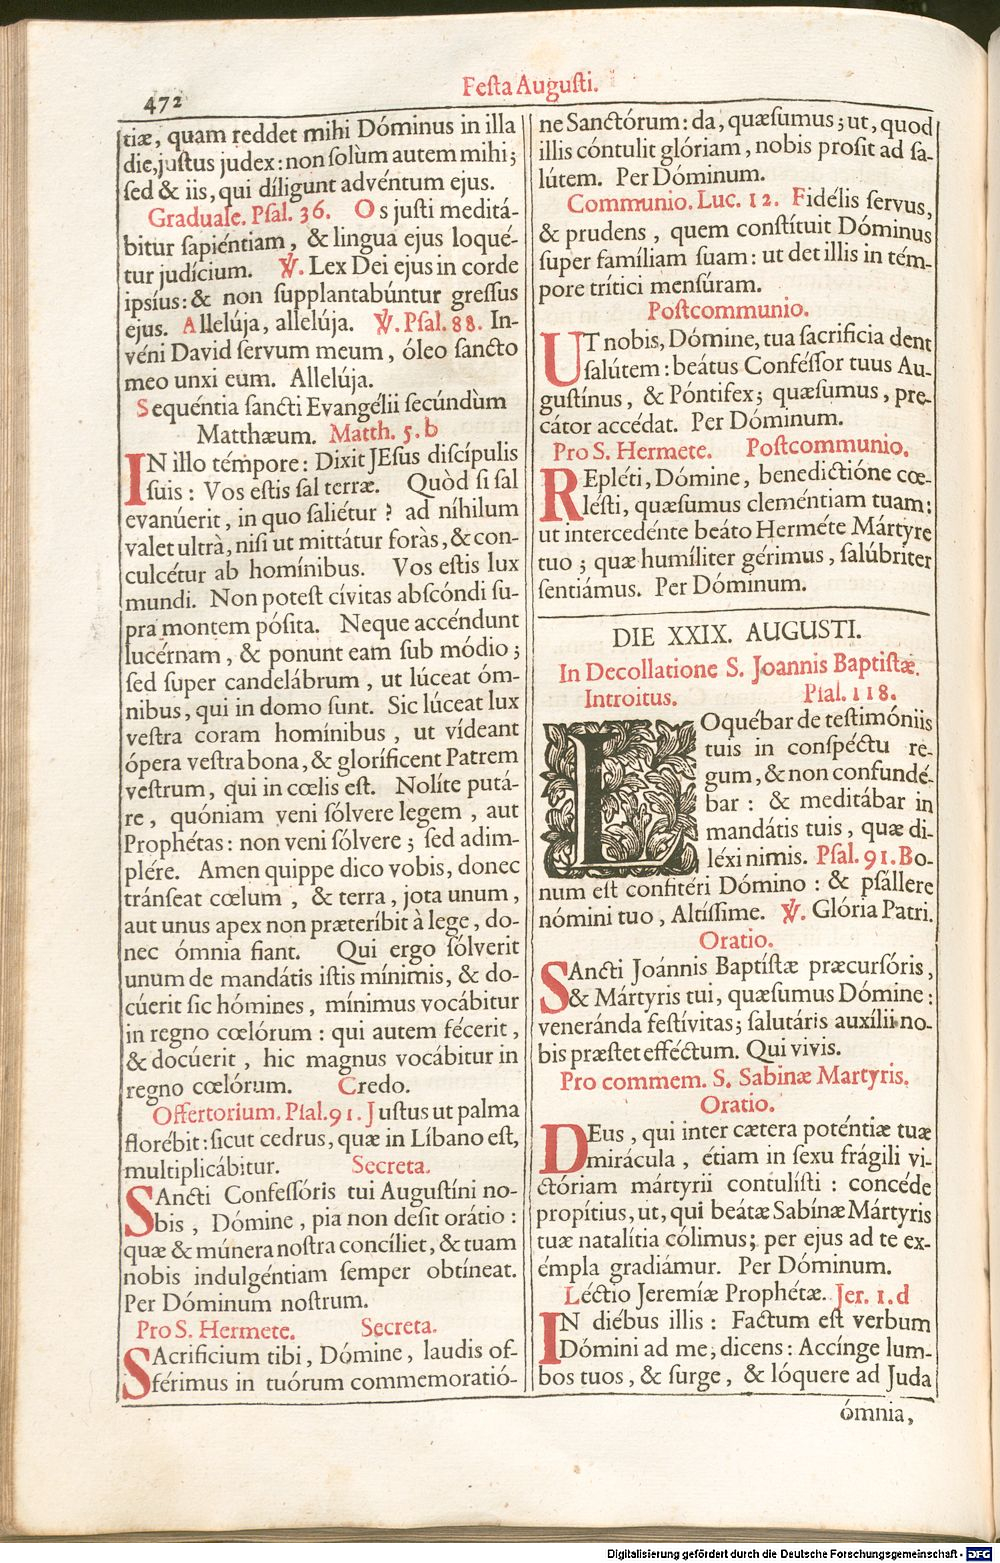 472
Festa Augusti.
tiæ, quam reddet mihi Dóminus in illa
die, justus judex: non solùm autem mihi;
sed & iis, qui díligunt advéntum ejus.
Graduale. Psal. 36. Os justi meditá-
bitur sapiéntiam, & lingua ejus loqué-
tur judícium. ℣. Lex Dei ejus in corde
ipsíus: & non supplantabúntur gressus
ejus. Allelúja, allelúja. ℣. Psal. 88. In-
véni David servum meum, óleo sancto
meo unxi eum. Allelúja.
Sequéntia sancti Evangélii secúndùm
Matthæum. Matth. 5. b
IN illo témpore: Dixit JEsus discípulis
suis: Vos estis sal terræ. Quòd si sal
evanúerit, in quo saliétur? ad níhilum
valet ultrà, nisi ut mittátur foràs, & con-
culcétur ab homínibus. Vos estis lux
mundi. Non potest cívitas abscóndi su-
pra montem pósita. Neque accéndunt
lucérnam, & ponunt eam sub módio;
sed super candelábrum, ut lúceat óm-
nibus, qui in domo sunt. Sic lúceat lux
vestra coram homínibus, ut vídeant
ópera vestra bona, & gloríficent Patrem
vestrum, qui in cœlis est. Nolíte putá-
re, quóniam veni sólvere legem, aut
Prophétas: non veni sólvere; sed adim-
plére. Amen quippe dico vobis, donec
tránseat cœlum, & terra, jota unum,
aut unus apex non præteríbit à lege, do-
nec ómnia fiant. Qui ergo sólverit
unum de mandátis istis mínimis, & do-
cúerit sic hómines, mínimus vocábitur
in regno cœlórum: qui autem fécerit,
& docúerit, hic magnus vocábitur in
regno cœlórum. Credo.
Offertorium. Psal. 91. Justus ut palma
florébit: sicut cedrus, quæ in Líbano est,
multiplicábitur. Secreta.
SAncti Confessóris tui Augustíni no-
bis, Dómine, pia non desit orátio:
quæ & múnera nostra concíliet, & tuam
nobis indulgéntiam semper obtíneat.
Per Dóminum nostrum.
Pro S. Hermete. Secreta.
SAcrificium tibi, Dómine, laudis of-
férimus in tuórum commemoratió-
ne Sanctórum: da, quæsumus; ut, quod
illis cóntulit glóriam, nobis prosit ad sa-
lútem. Per Dóminum.
Communio. Luc. 12. Fidélis servus,
& prudens, quem constítuit Dóminus
super famíliam suam: ut det illis in tém-
pore trítici mensúram.
Postcommunio.
UT nobis, Dómine, tua sacrificia dent
salútem: beátus Conféssor tuus Au-
gustínus, & Póntifex; quæsumus, pre-
cátor accédat. Per Dóminum.
Pro S. Hermete. Postcommunio.
REpléti, Dómine, benedictióne cœ-
lésti, quæsumus cleméntiam tuam:
ut intercedénte beáto Herméte Mártyre
tuo; quæ humíliter gérimus, salúbriter
sentiámus. Per Dóminum.
DIE XXIX. AUGUSTI.
In Decollatione S. Joannis Baptistæ.
Introitus. Psal. 118.
LOquébar de testimóniis
tuis in conspéctu re-
gum, & non confundé-
bar: & meditábar in
mandátis tuis, quæ di-
léxi nimis. Psal. 91. Bo-
num est confitéri Dómino: & psállere
nómini tuo, Altíssime. ℣. Glória Patri.
Oratio.
SAncti Joánnis Baptístæ præcursóris,
& Mártyris tui, quæsumus Dómine:
veneránda festívitas; salutáris auxílii no-
bis præstet efféctum. Qui vivis.
Pro commem. S. Sabinæ Martyris.
Oratio.
DEus, qui inter cætera poténtiæ tuæ
mirácula, étiam in sexu frágili vi-
ctóriam mártyrii contulísti: concéde
propítius, ut, qui beátæ Sabínæ Mártyris
tuæ natalítia cólimus; per ejus ad te ex-
émpla gradiámur. Per Dóminum.
Léctio Jeremíæ Prophétæ. Jer. 1. d
IN diébus illis: Factum est verbum
Dómini ad me, dicens: Accínge lum-
bos tuos, & surge, & lóquere ad Juda
ómnia,
Digitalisierung gefördert durch die Deutsche Forschungsgemeinschaft - DFG